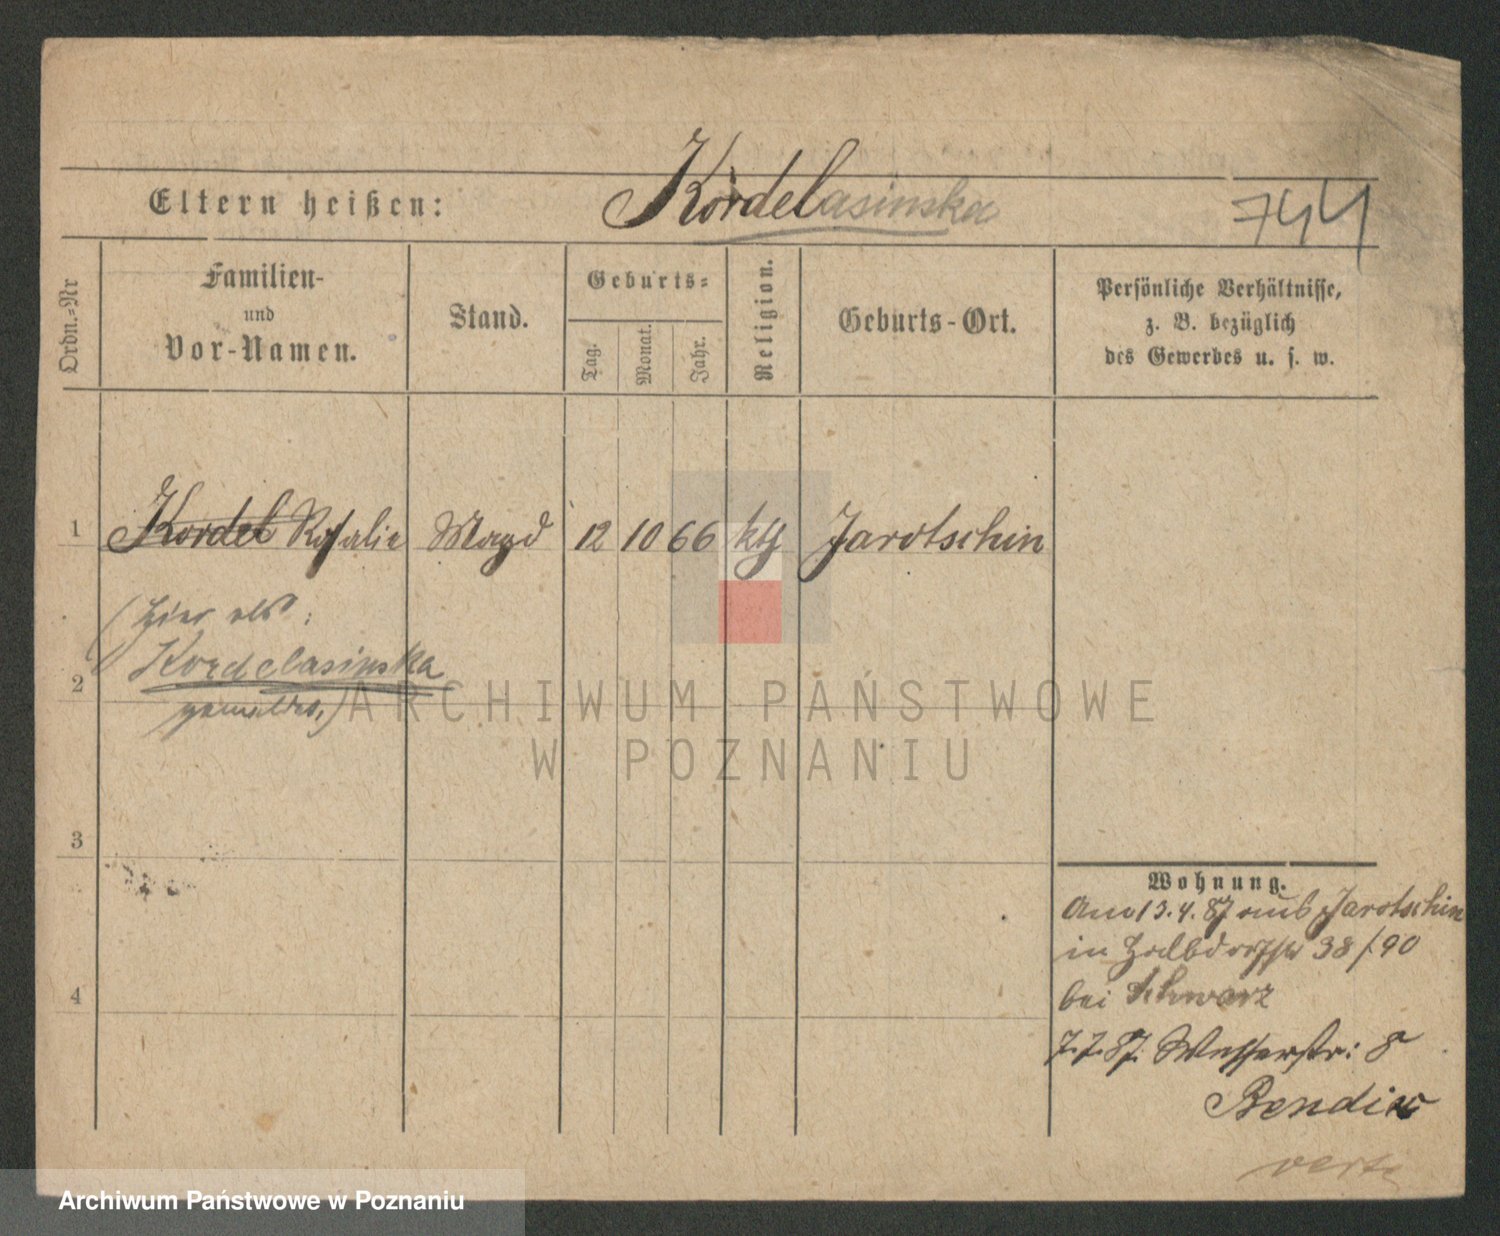 Kordelasinska
744
Eltern heißen:
Ordn.=Nr
Familien-
und
Vor-Namen.
Stand.
Geburts=
Tag.
Monat.
Jahr.
Religion.
Geburts-Ort.
Persönliche Verhältnisse,
z. B. bezüglich
des Gewerbes u. s. w.
1 Kordel Rosalie Magd 12 10 66 kth Jarotschin
(hier als:
Kordelasinska
gemeldet,)
2
3
4
ARCHIWUM PAŃSTWOWE
W POZNANIU
Wohnung.
Am 13.4.87 aus Jarotschin
in Halbdorfstr 38/90
bei Schwarz
7.7.87. Wasserstr: 8
Bendix
verte
Archiwum Państwowe w Poznaniu